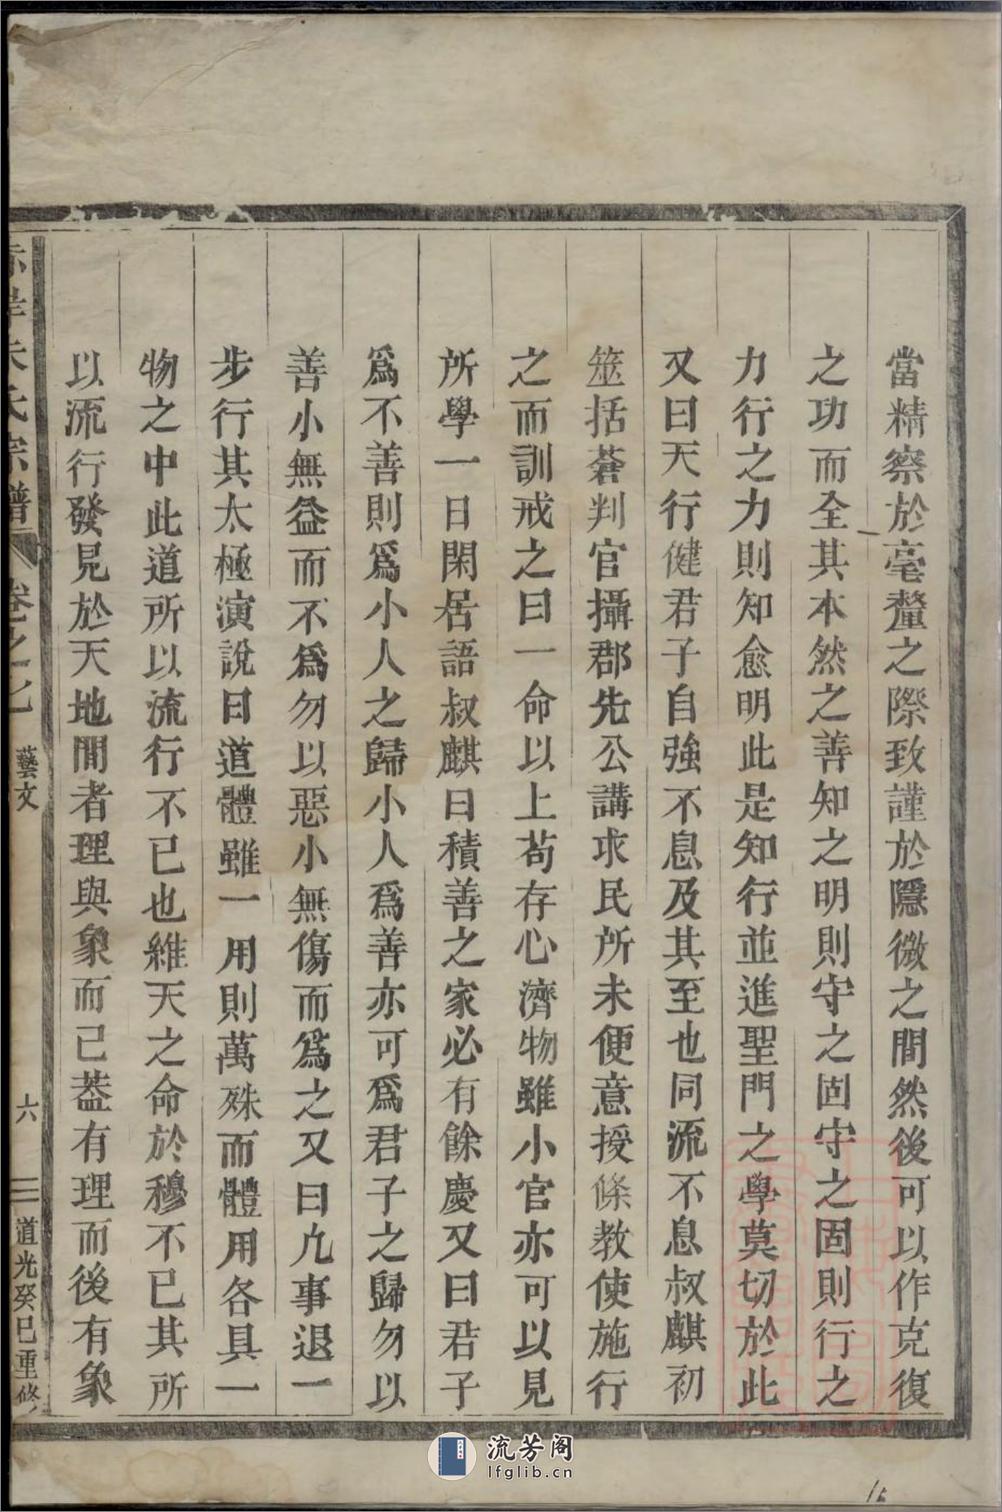 當精察於毫釐之際致謹於隱微之間然後可以作克復
之功而全其本然之善知之明則守之固守之固則行之
力行之力則知愈明此是知行並進聖門之學莫切於此
又曰天行健君子自強不息及其至也同流不息叔麒初
筮括蒼判官攝郡先公講求民所未便意授條教使施行
之而訓戒之曰一命以上苟存心濟物雖小官亦可以見
所學一日閑居語叔麒曰積善之家必有餘慶又曰君子
爲不善則爲小人之歸小人爲善亦可爲君子之歸勿以
善小無益而不爲勿以惡小無傷而爲之又曰九事退一
步行其太極演說曰道體雖一用則萬殊而體用各具一
物之中此道所以流行不已也維天之命於穆不已其所
以流行發見於天地閒者理與象而已葢有理而後有象
宗譜 卷之七 藝文 六 道光癸巳重修
流芳阁
lfglib.cn